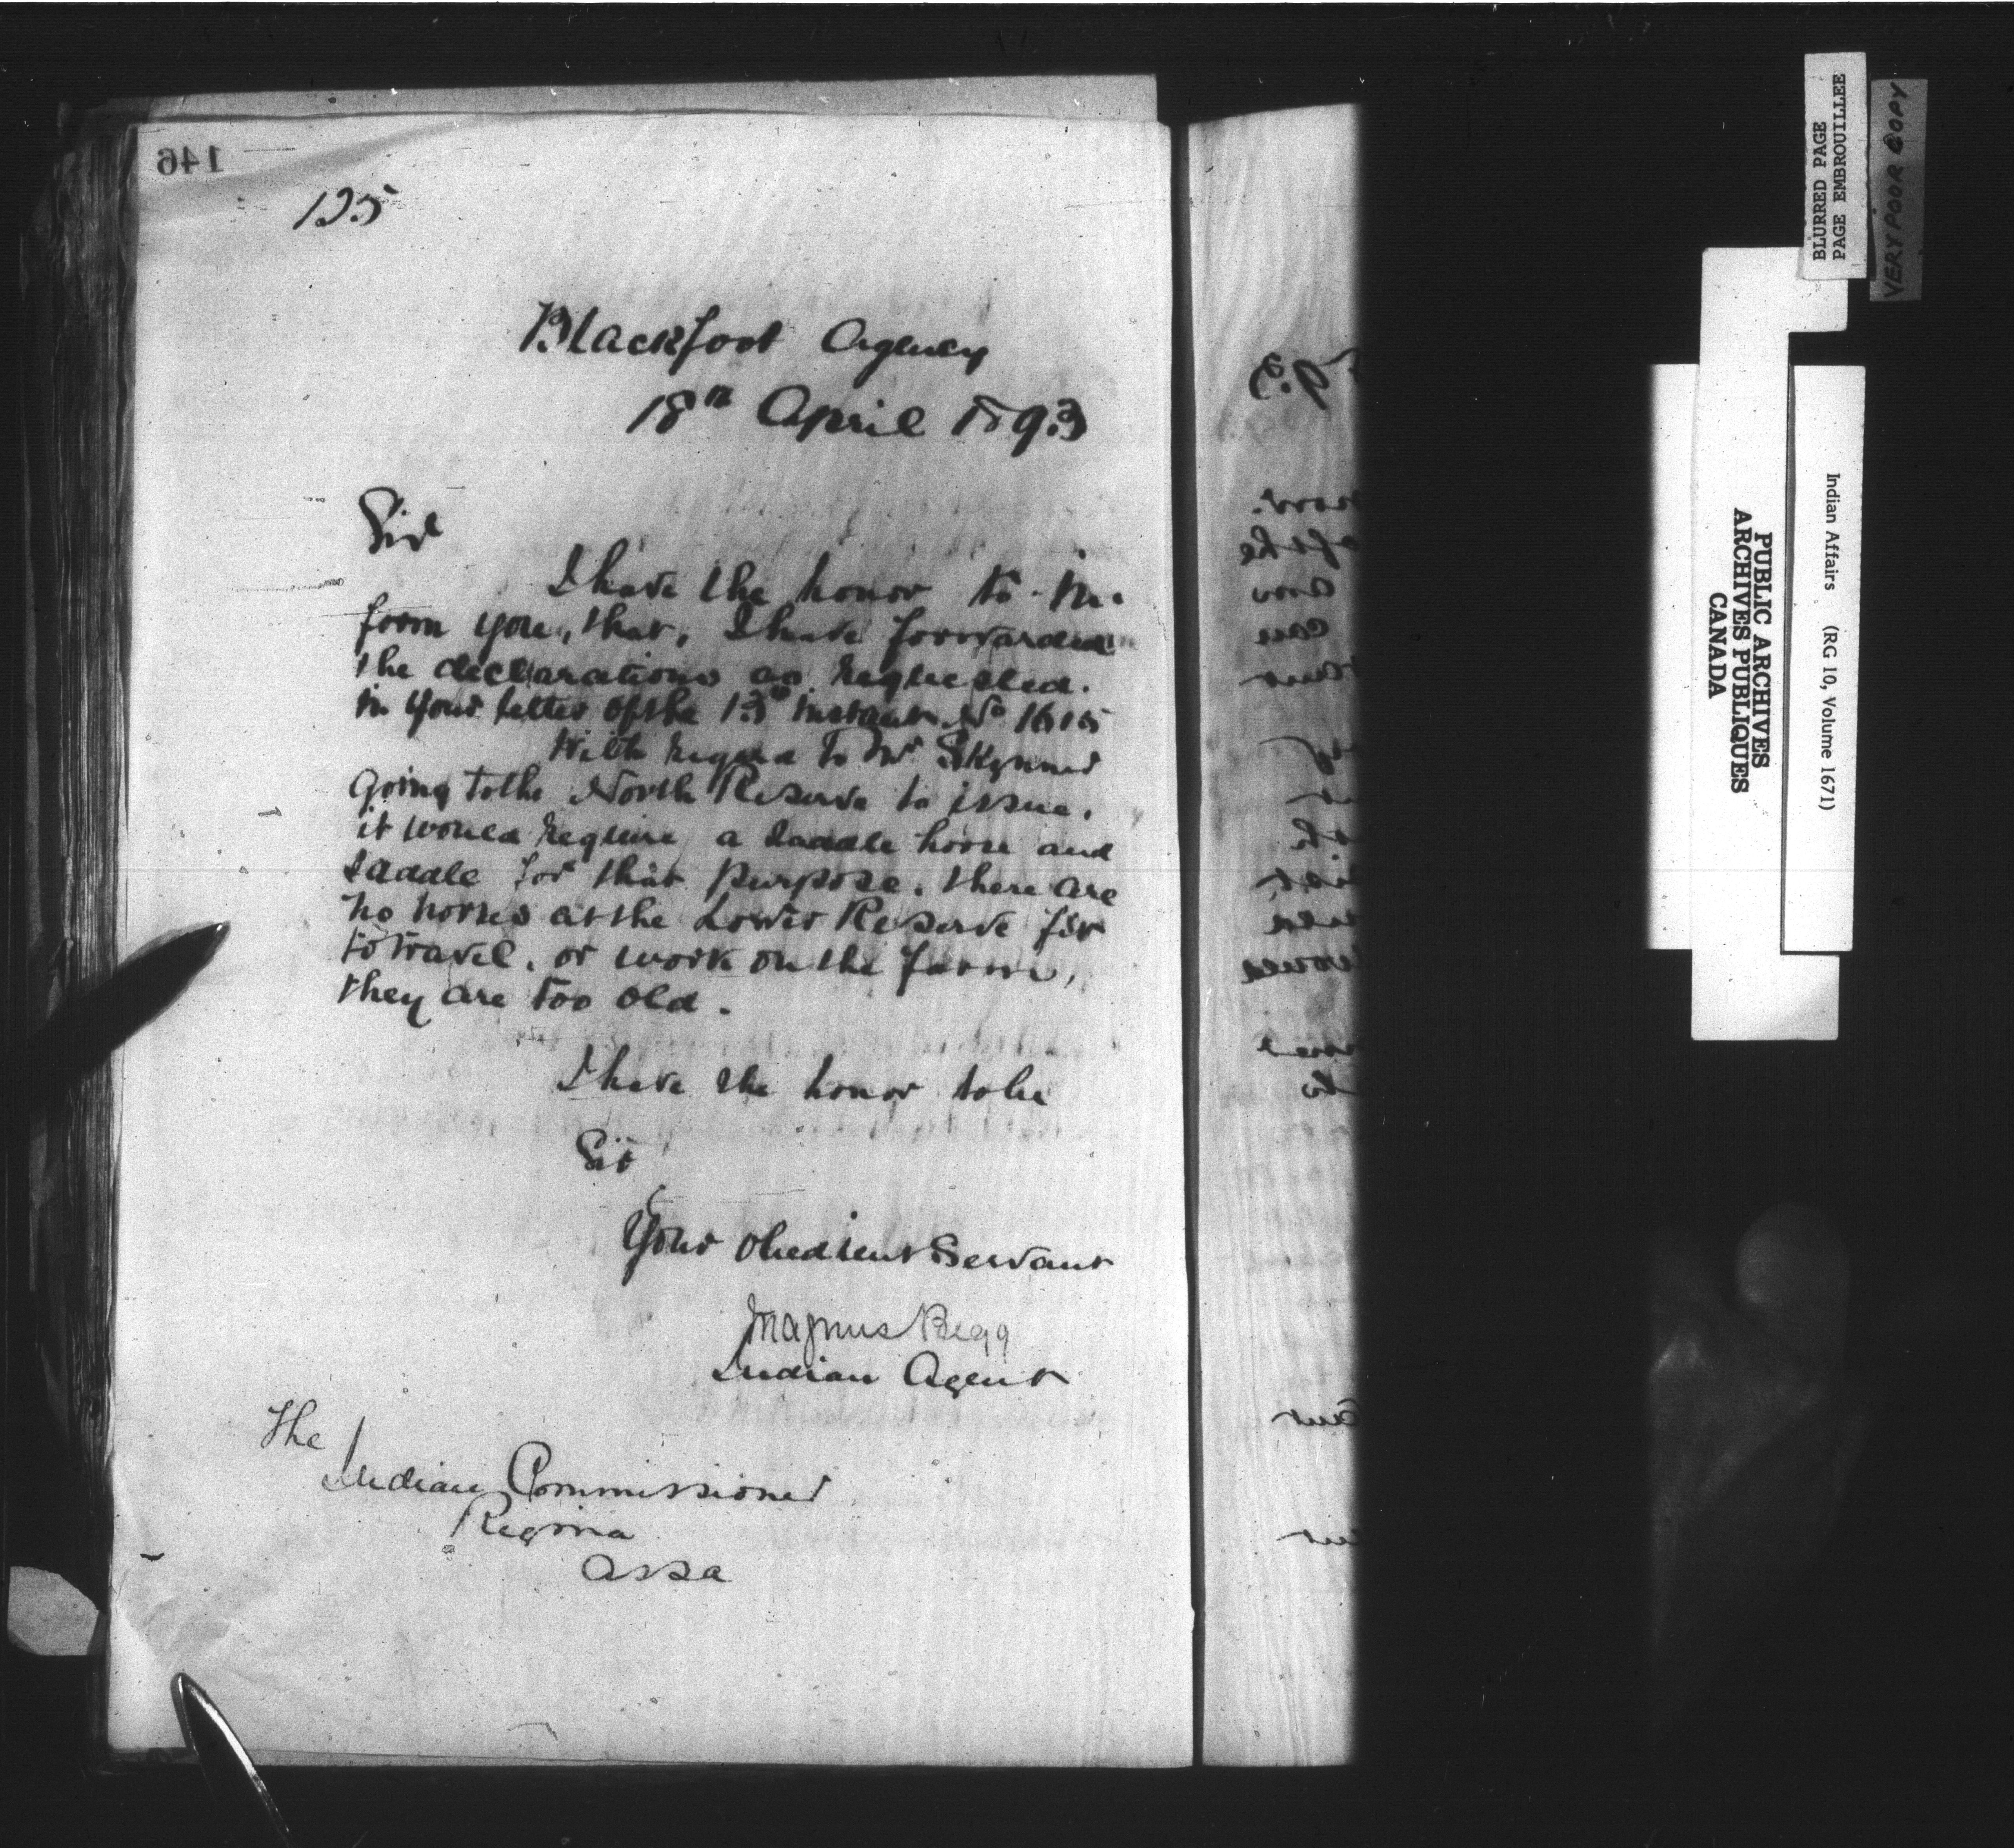 146
125
Blackfoot Agency
18th April 1893
Sir
I have the honor to in-
form you, that, I have forwarded
the declarations as requested.
in your letter of the 13th instant No 1615
With regard to Mr Skynner
going to the North Reserve to issue.
it would require a saddle horse and
saddle for that purpose. there are
no horses at the Lower Reserve fit
to travel. or work on the farm,
they are too old.
I have the honor to be
Sir
Your obedient Servant
Magnus Begg
Indian Agent
The
Indian Commissioner
Regina
Assa
BLURRED PAGE
PAGE EMBROUILLEE
VERY POOR COPY
Indian Affairs (RG 10, Volume 1671)
PUBLIC ARCHIVES
ARCHIVES PUBLIQUES
CANADA